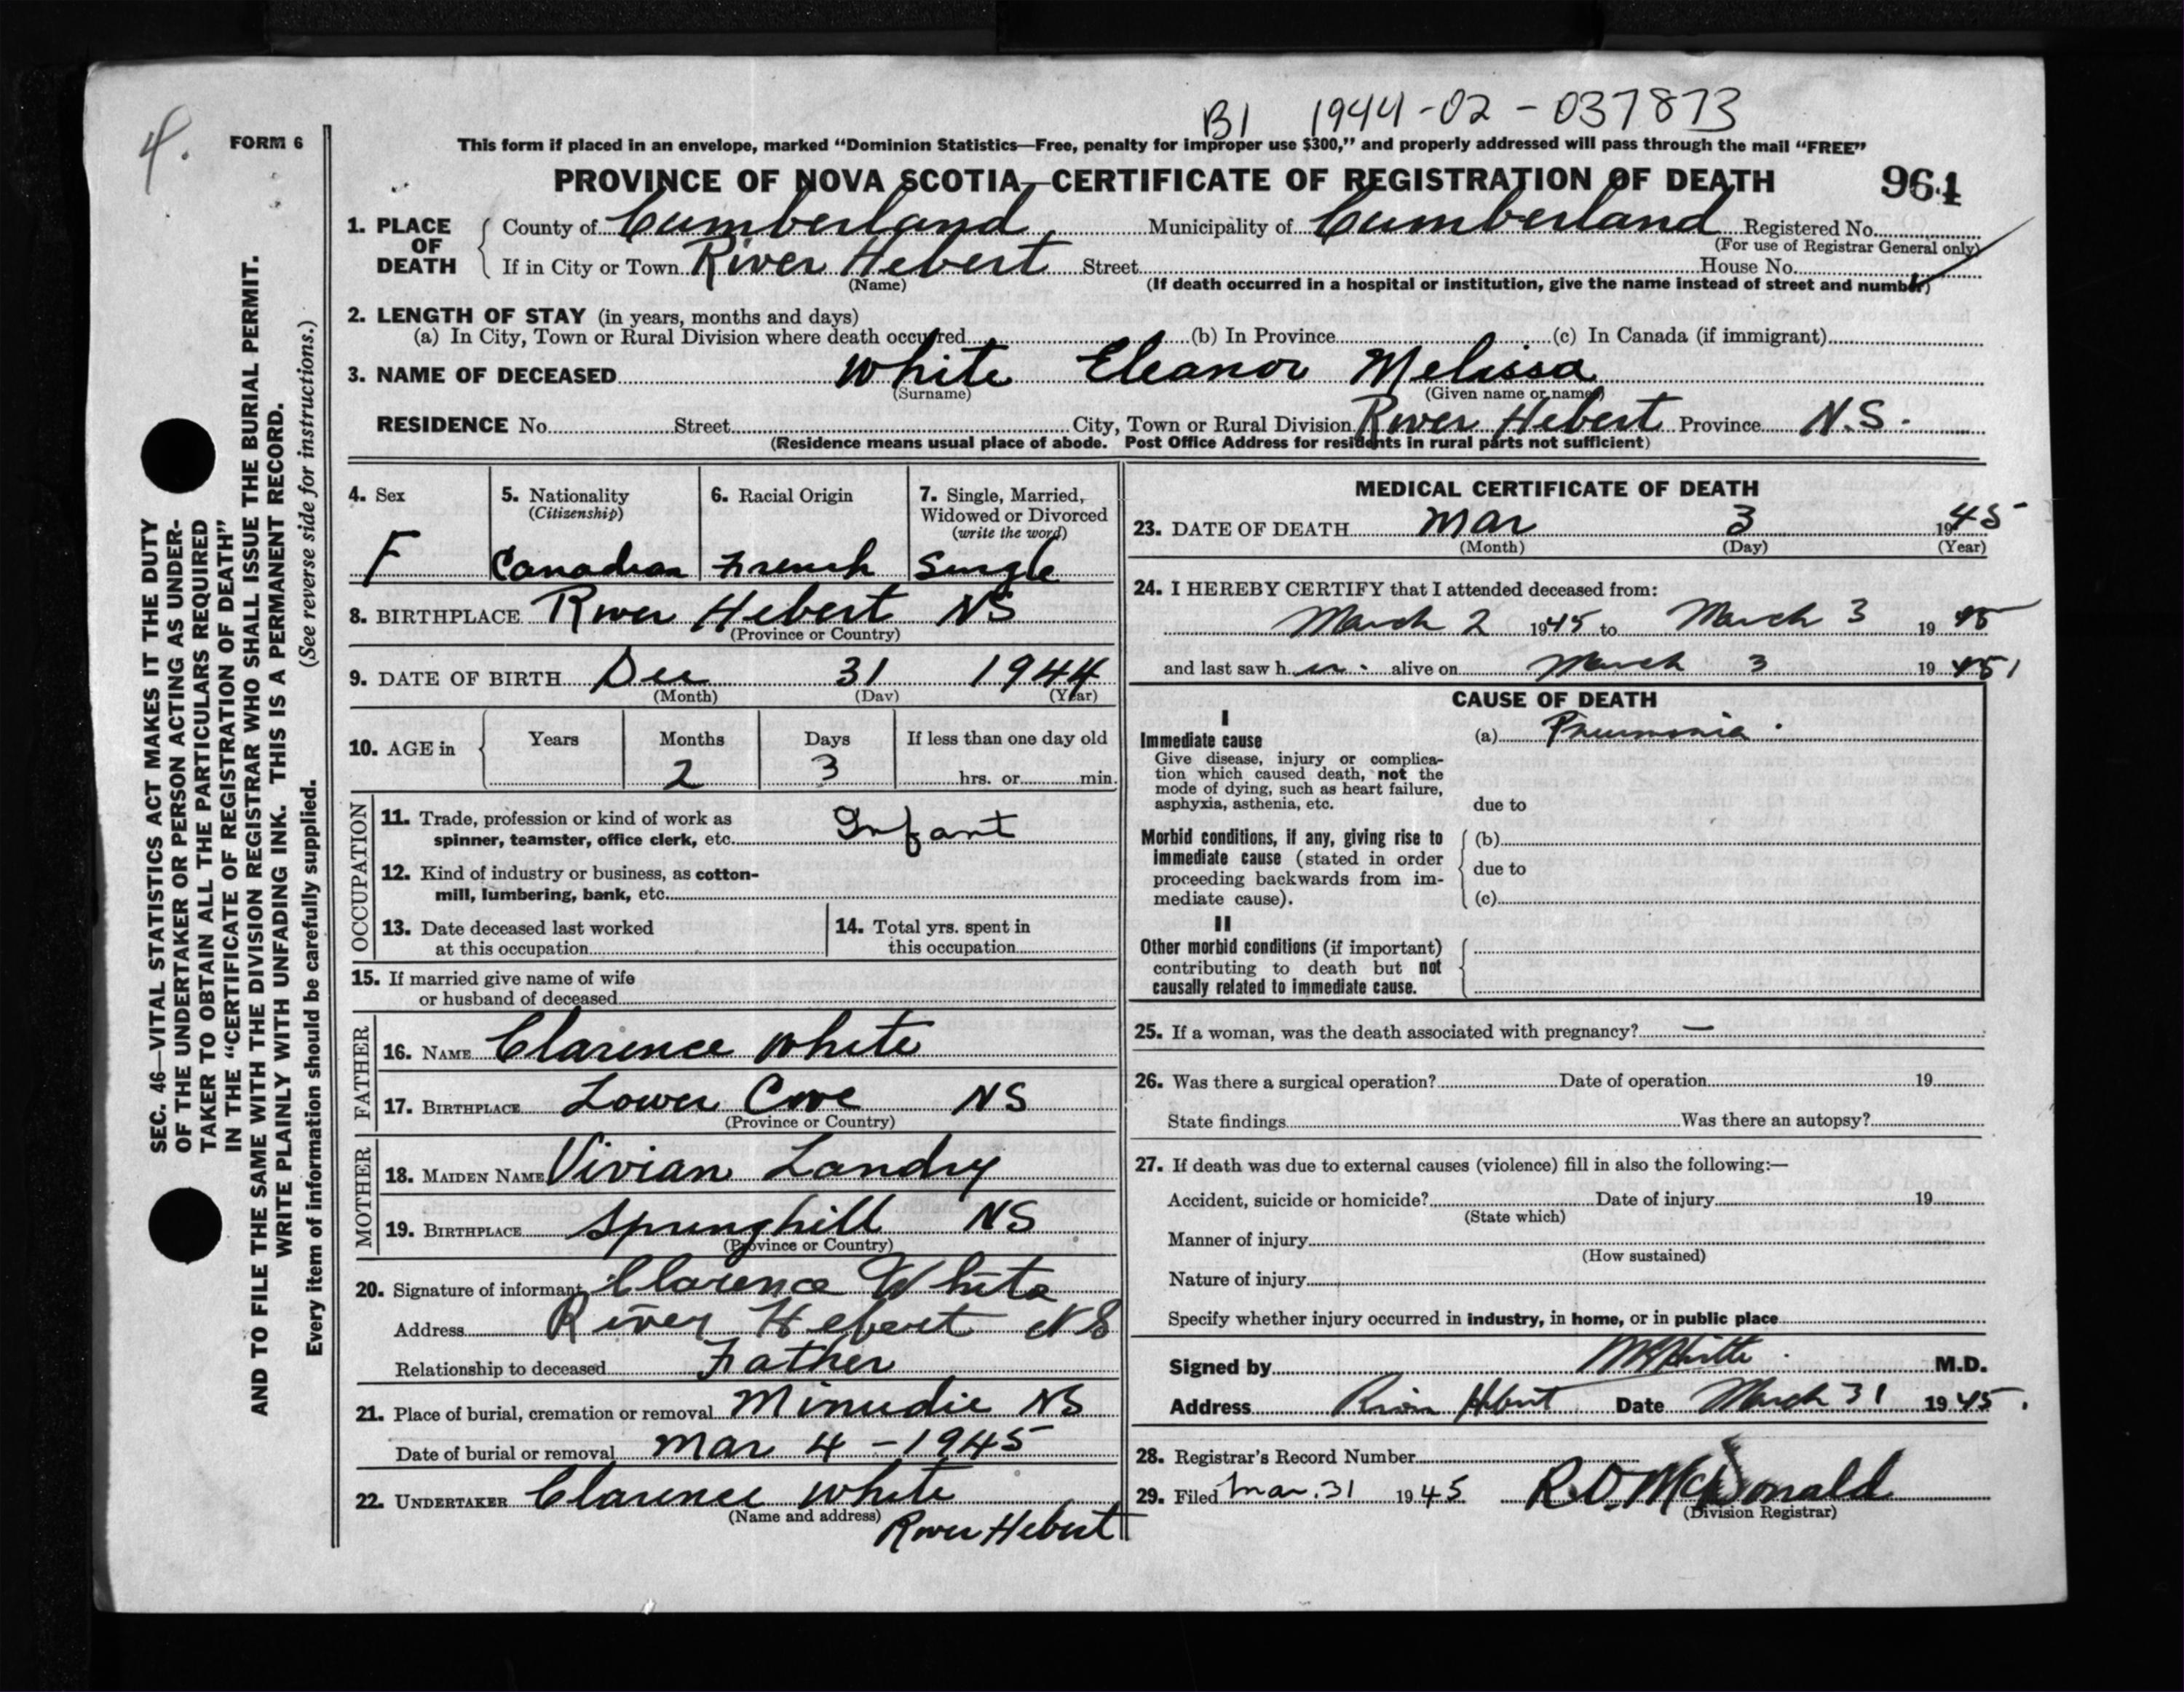 4.
B1 1944-02-037873
FORM 6
This form if placed in an envelope, marked "Dominion Statistics—Free, penalty for improper use $300," and properly addressed will pass through the mail "FREE"
PROVINCE OF NOVA SCOTIA—CERTIFICATE OF REGISTRATION OF DEATH 964
1. PLACE OF DEATH County of Cumberland Municipality of Cumberland Registered No.
(For use of Registrar General only)
If in City or Town River Hebert Street House No.
(Name) (If death occurred in a hospital or institution, give the name instead of street and number)
2. LENGTH OF STAY (in years, months and days)
(a) In City, Town or Rural Division where death occurred (b) In Province (c) In Canada (if immigrant)
3. NAME OF DECEASED White Eleanor Melissa
(Surname) (Given name or names)
RESIDENCE No. Street City, Town or Rural Division River Hebert Province N.S.
(Residence means usual place of abode. Post Office Address for residents in rural parts not sufficient)
SEC. 46—VITAL STATISTICS ACT MAKES IT THE DUTY
OF THE UNDERTAKER OR PERSON ACTING AS UNDER-
TAKER TO OBTAIN ALL THE PARTICULARS REQUIRED
IN THE "CERTIFICATE OF REGISTRATION OF DEATH"
AND TO FILE THE SAME WITH THE DIVISION REGISTRAR WHO SHALL ISSUE THE BURIAL PERMIT.
WRITE PLAINLY WITH UNFADING INK. THIS IS A PERMANENT RECORD.
Every item of information should be carefully supplied. (See reverse side for instructions.)
4. Sex
F
5. Nationality
(Citizenship)
Canadian
6. Racial Origin
French
7. Single, Married,
Widowed or Divorced
(write the word)
Single
8. BIRTHPLACE River Hebert NS
(Province or Country)
9. DATE OF BIRTH Dec 31 1944
(Month) (Day) (Year)
10. AGE in Years Months Days If less than one day old
2 3 hrs. or min.
OCCUPATION
11. Trade, profession or kind of work as
spinner, teamster, office clerk, etc. Infant
12. Kind of industry or business, as cotton-
mill, lumbering, bank, etc.
13. Date deceased last worked
at this occupation
14. Total yrs. spent in
this occupation
15. If married give name of wife
or husband of deceased
FATHER
16. NAME Clarence White
17. BIRTHPLACE Lower Cove NS
(Province or Country)
MOTHER
18. MAIDEN NAME Vivian Landry
19. BIRTHPLACE Springhill NS
(Province or Country)
20. Signature of informant Clarence White
Address River Hebert NS
Relationship to deceased Father
21. Place of burial, cremation or removal Minudie NS
Date of burial or removal Mar 4 - 1945
22. UNDERTAKER Clarence White
(Name and address) River Hebert
MEDICAL CERTIFICATE OF DEATH
23. DATE OF DEATH Mar 3 1945
(Month) (Day) (Year)
24. I HEREBY CERTIFY that I attended deceased from:
March 2 1945 to March 3 1945
and last saw h er alive on March 3 1945
CAUSE OF DEATH
I
Immediate cause (a) Pneumonia.
Give disease, injury or complica-
tion which caused death, not the
mode of dying, such as heart failure,
asphyxia, asthenia, etc. due to
Morbid conditions, if any, giving rise to (b)
immediate cause (stated in order
proceeding backwards from im- due to
mediate cause). (c)
II
Other morbid conditions (if important)
contributing to death but not
causally related to immediate cause.
25. If a woman, was the death associated with pregnancy? —
26. Was there a surgical operation? Date of operation 19
State findings Was there an autopsy?
27. If death was due to external causes (violence) fill in also the following:—
Accident, suicide or homicide? Date of injury 19
(State which)
Manner of injury
(How sustained)
Nature of injury
Specify whether injury occurred in industry, in home, or in public place
Signed by M.D.
Address River Hebert Date March 31 1945.
28. Registrar's Record Number
29. Filed Mar. 31 1945 R.D. McDonald
(Division Registrar)